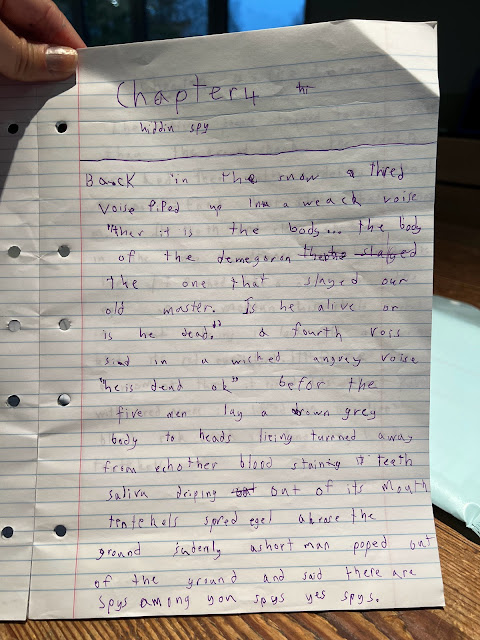 Chapter 4
hiddin spy
Back in the snow a thred
voise piped up in a weack voise
"ther it is the body... the body
of the demegoron
the one that slayed our
old master. Is he alive or
is he dead." a fourth voiss
sied in a wicked angrey voise
"he is dead ok" befor the
five men lay a brown grey
body to heads lieing turened away
from echother blood staining it teeth
saliva driping out of its mouth
tentekels spred egel abrose the
ground sudenly a short man poped out
of the ground and said there are
spys among you spys yes spys.